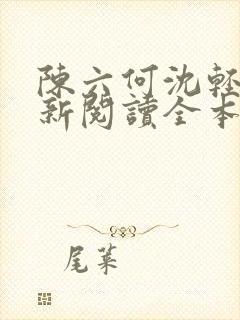 陳六何沈輕
新閱讀全本
尾葉